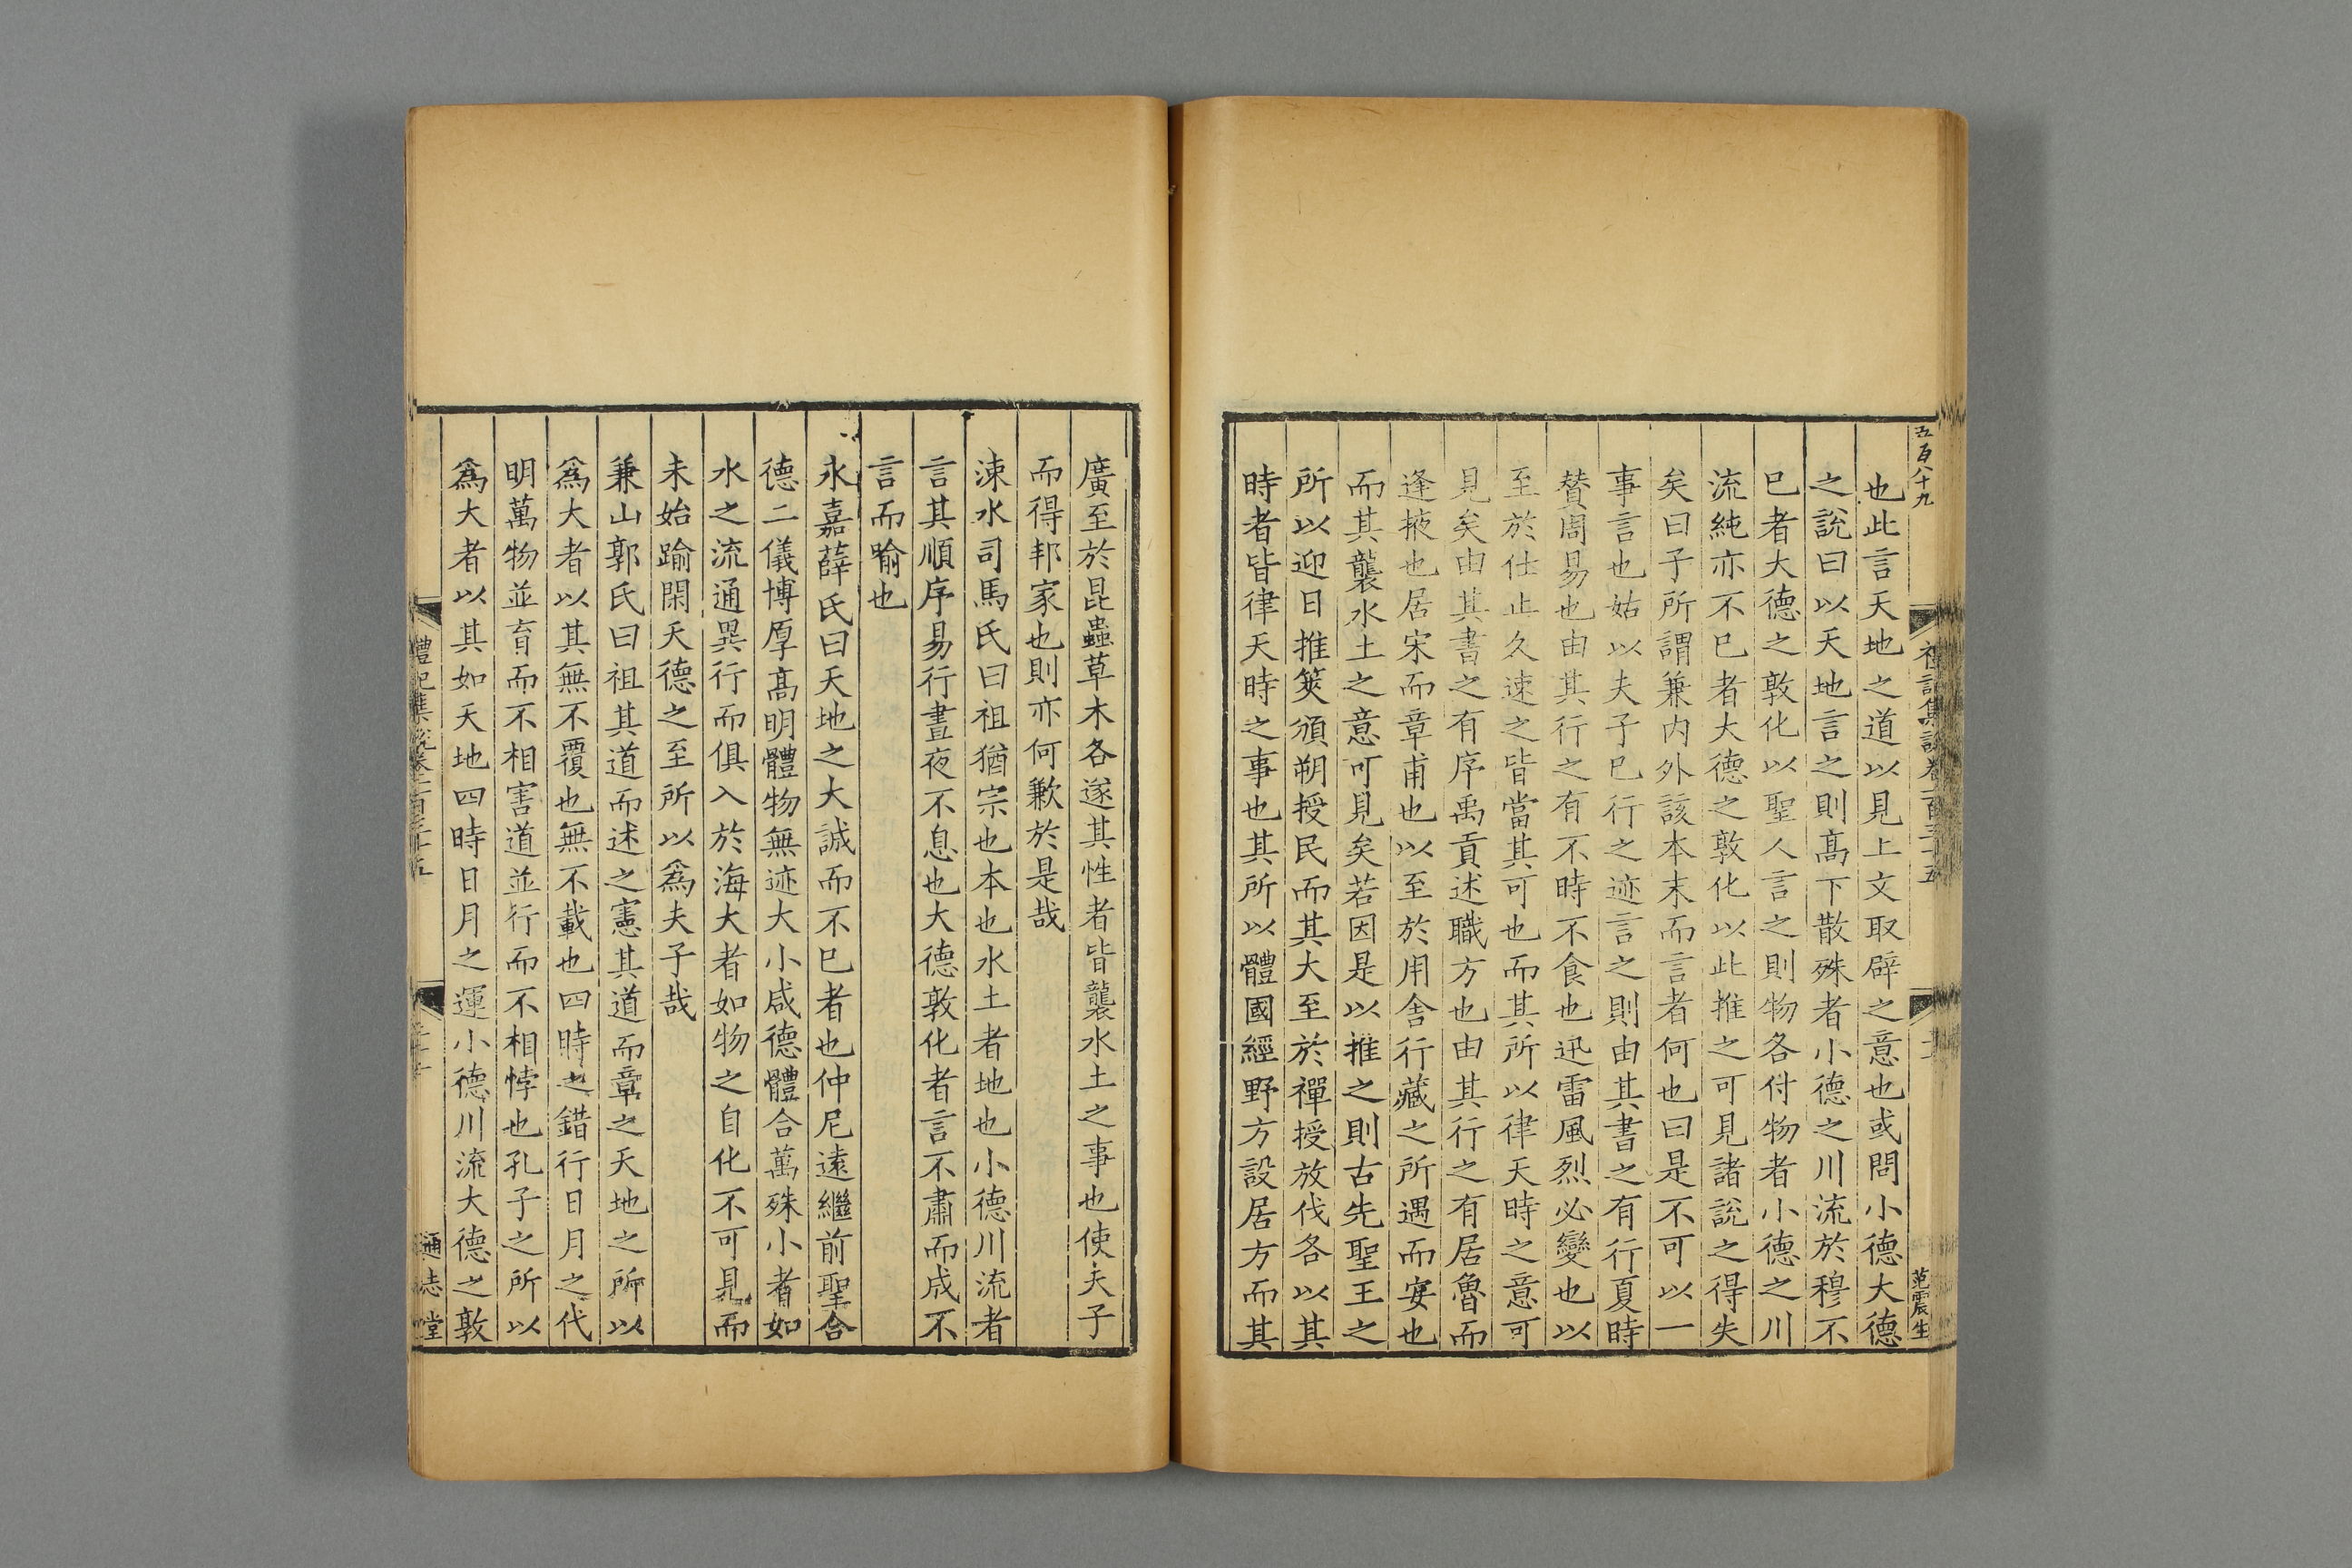 五百八十九
范震生
也此言天地之道以見上文取辟之意也或問小德大德
之說曰以天地言之則髙下散殊者小德之川流於穆不
已者大德之敦化以聖人言之則物各付物者小德之川
流純亦不已者大德之敦化以此推之可見諸說之得失
矣曰子所謂兼内外該本末而言者何也曰是不可以一
事言也姑以夫子已行之迹言之則由其書之有行夏時
贊周易也由其行之有不時不食也迅雷風烈必變也以
至於仕止久速之皆當其可也而其所以律天時之意可
見矣由其書之有序禹貢述職方也由其行之有居魯而
逢掖也居宋而章甫也以至於用舍行藏之所遇而安也
而其襲水土之意可見矣若因是以推之則古先聖王之
所以迎日推筴頒朔授民而其大至於禪授放伐各以其
時者皆律天時之事也其所以體國經野方設居方而其
廣至於昆蟲草木各遂其性者皆襲水土之事也使夫子
而得邦家也則亦何歉於是哉
涑水司馬氏曰祖猶宗也本也水土者地也小德川流者
言其順序易行晝夜不息也大德敦化者言不肅而成不
言而喻也
永嘉薛氏曰天地之大誠而不已者也仲尼遠繼前聖合
德二儀博厚髙明體物無迹大小咸德體合萬殊小者如
水之流通異行而俱入於海大者如物之自化不可見而
未始踰閑天德之至所以爲夫子哉
兼山郭氏曰祖其道而述之憲其道而章之天地之所以
爲大者以其無不覆也無不載也四時之錯行日月之代
明萬物並育而不相害道並行而不相悖也孔子之所以
爲大者以其如天地四時日月之運小德川流大德之敦
禮記集說卷一百三十五
通志堂